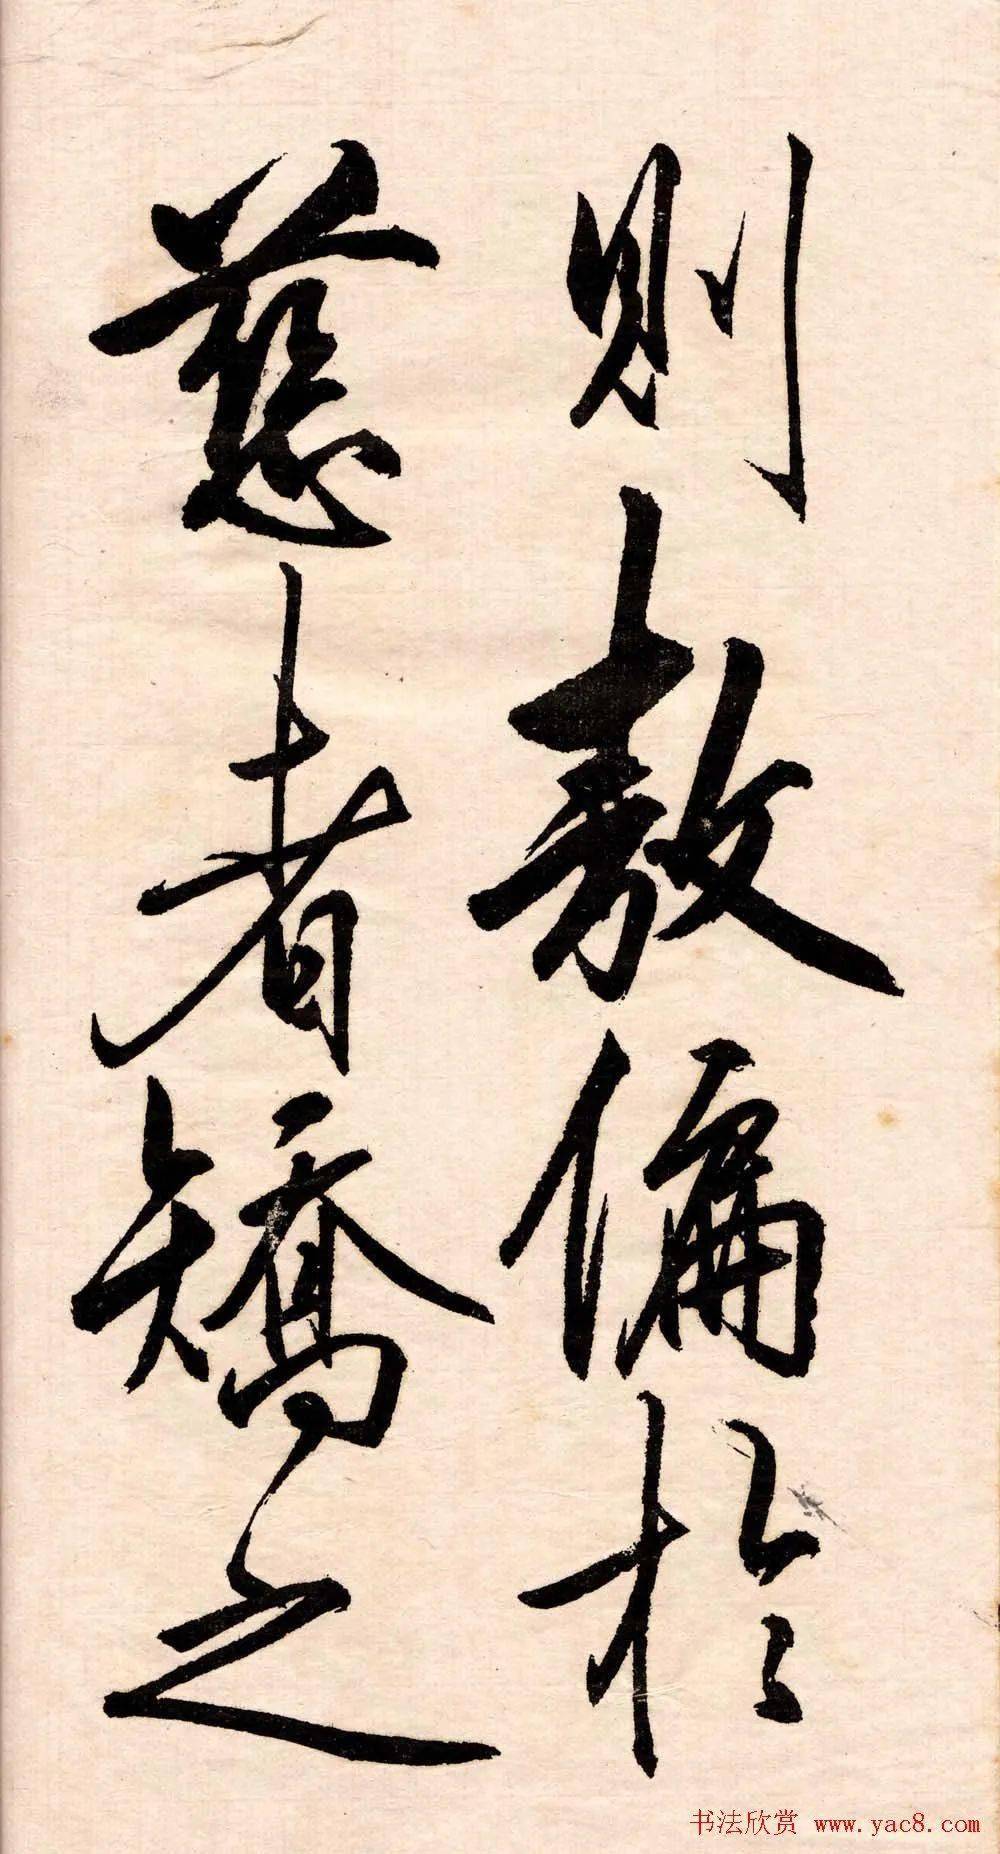 则敖偏於
慈者矯之
书法欣赏 www.yac8.com